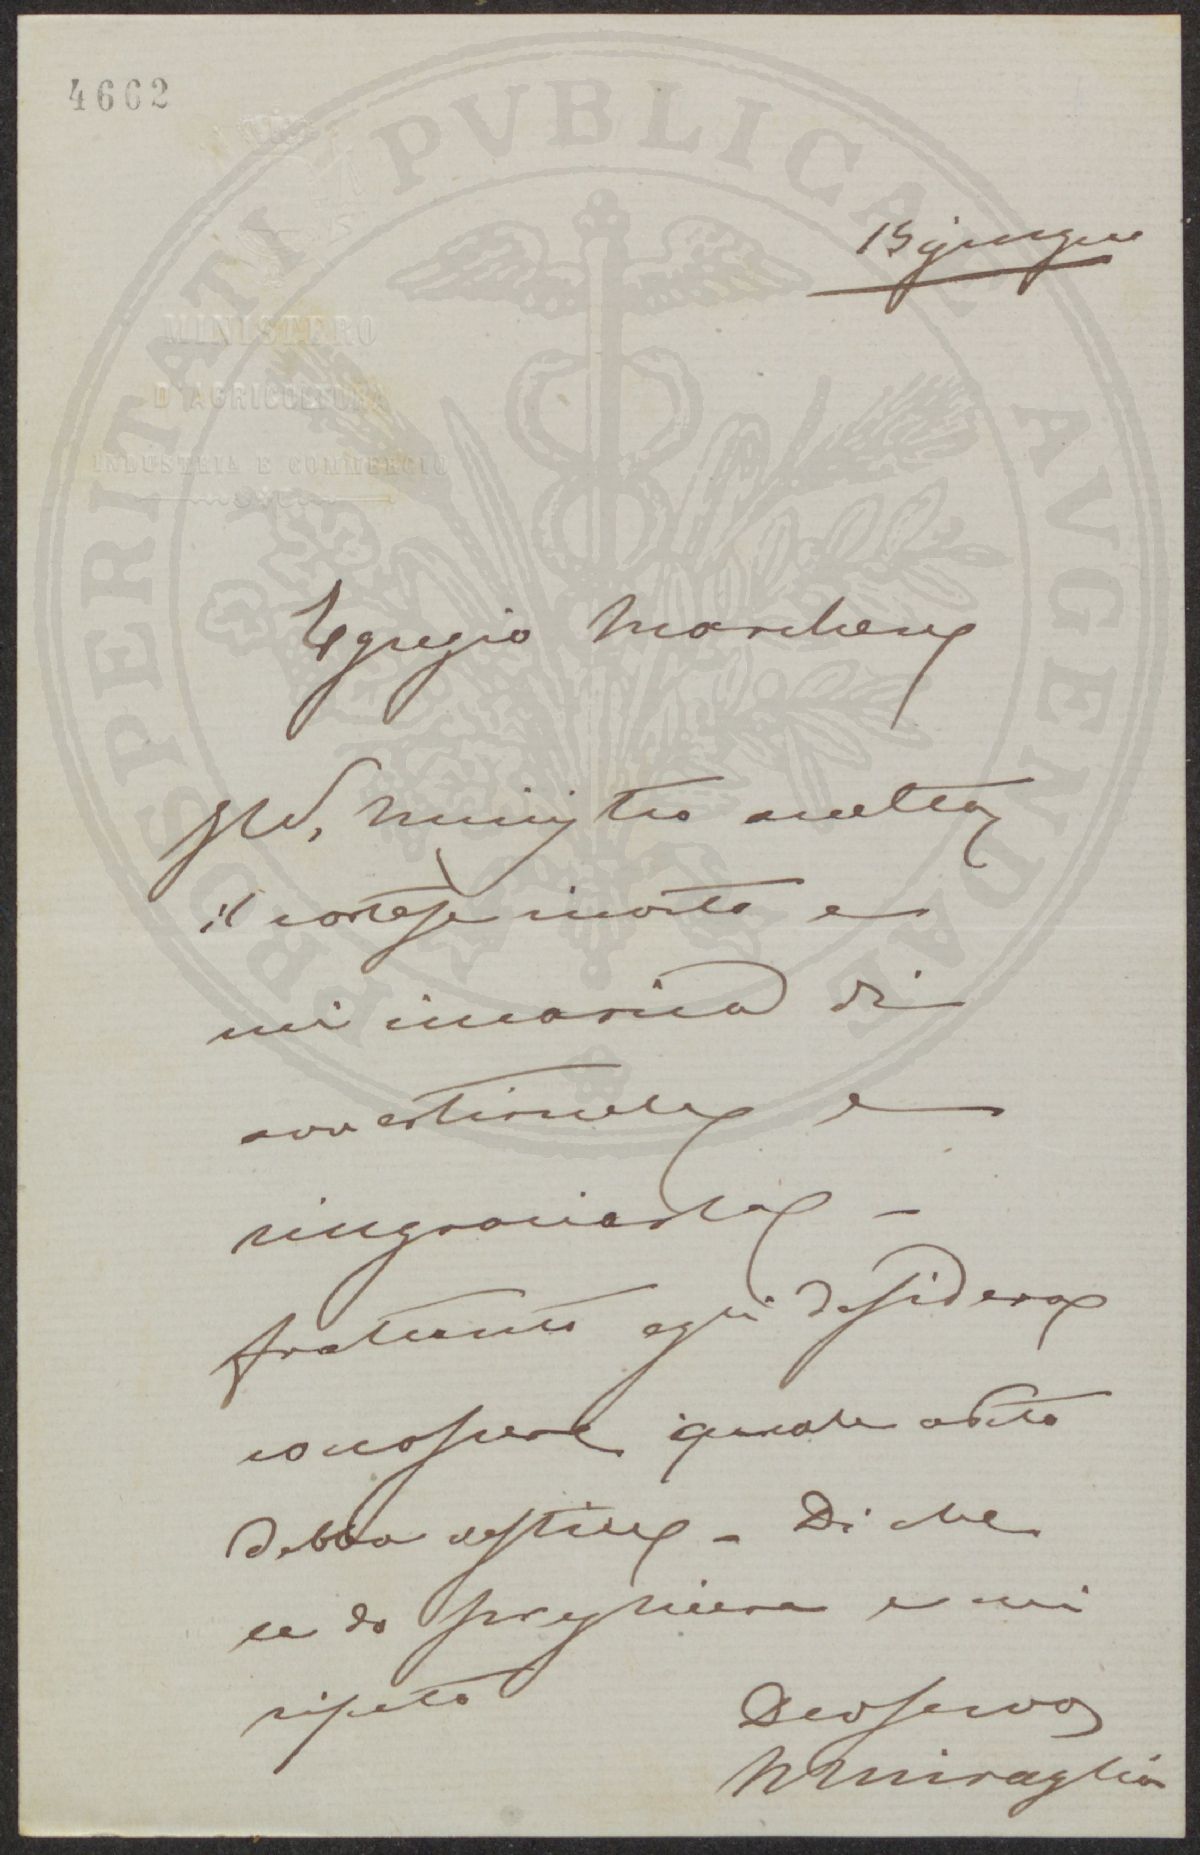 4662
PROSPERITATI PVBLICAE AVGENDAE
15 giugno
MINISTERO
D'AGRICOLTURA
INDUSTRIA E COMMERCIO
Egregio Marchese
Il Ministro accetta
il cortese invito e
mi incarica di
avvertirnela e
ringraziarla -
frattanto egli desidera
conoscere quale abito
debba vestire - Di che
le do preghiera e mi
ripeto
Dev servo
N Miraglia